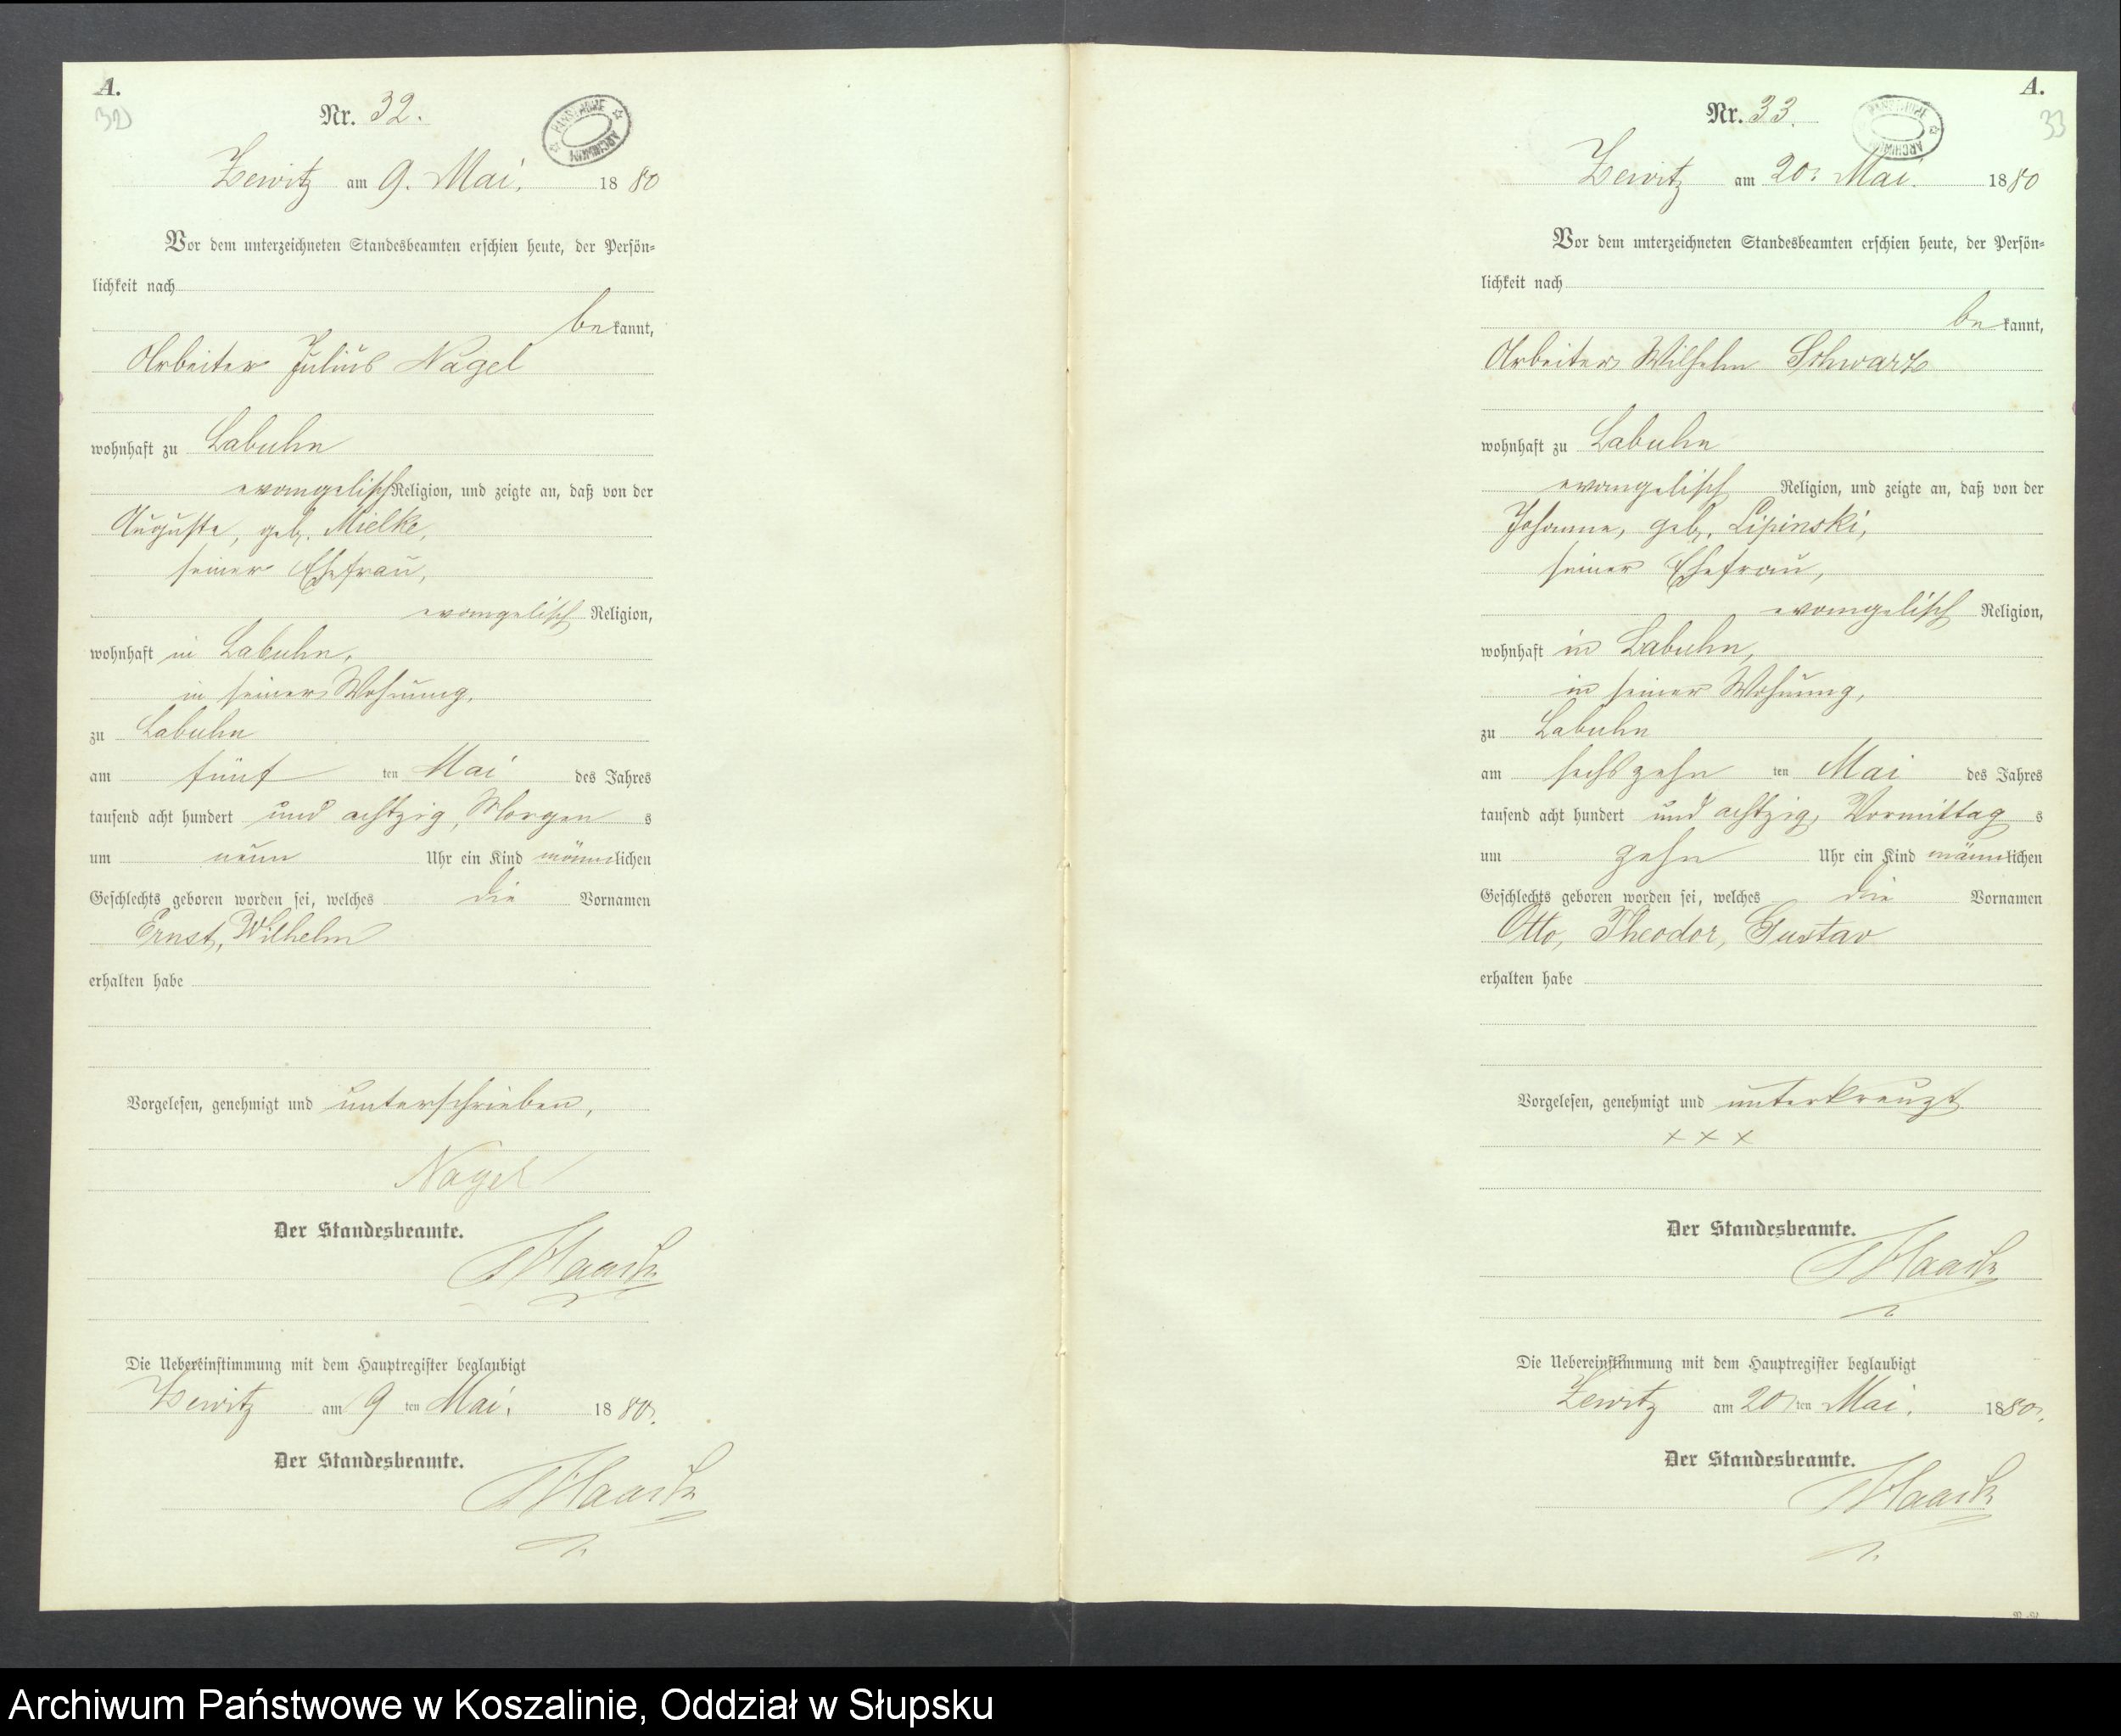 A.
32
Nr. 32.
PAŃSTWOWE ARCHIWUM
Zewitz am 9. Mai. 1880
Vor dem unterzeichneten Standesbeamten erschien heute, der Persön=
lichkeit nach
be kannt,
Arbeiter Julius Nagel
wohnhaft zu Labuhn
evangelisch Religion, und zeigte an, daß von der
Auguste, geb. Mielke,
seiner Ehefrau,
evangelisch Religion,
wohnhaft in Labuhn,
in seiner Wohnung,
zu Labuhn
am fünf ten Mai des Jahres
tausend acht hundert und achtzig, Morgen s
um neun Uhr ein Kind männlichen
Geschlechts geboren worden sei, welches die Vornamen
Ernst, Wilhelm
erhalten habe
Vorgelesen, genehmigt und unterschrieben,
Nagel
Der Standesbeamte.
Die Uebereinstimmung mit dem Hauptregister beglaubigt
Zewitz am 9 ten Mai. 1880.
Der Standesbeamte.
A.
33
Nr. 33.
PAŃSTWOWE ARCHIWUM
Zewitz am 20. Mai. 1880
Vor dem unterzeichneten Standesbeamten erschien heute, der Persön=
lichkeit nach
be kannt,
Arbeiter Wilhelm Schwarz
wohnhaft zu Labuhn
evangelisch Religion, und zeigte an, daß von der
Johanne, geb. Lipinski,
seiner Ehefrau,
evangelisch Religion,
wohnhaft in Labuhn,
in seiner Wohnung,
zu Labuhn
am sechszehn ten Mai des Jahres
tausend acht hundert und achtzig, Vormittag s
um zehn Uhr ein Kind männlichen
Geschlechts geboren worden sei, welches die Vornamen
Otto, Theodor, Gustav
erhalten habe
Vorgelesen, genehmigt und unterkreuzt
x x x
Der Standesbeamte.
Die Uebereinstimmung mit dem Hauptregister beglaubigt
Zewitz am 20 ten Mai. 1880.
Der Standesbeamte.
Archiwum Państwowe w Koszalinie, Oddział w Słupsku